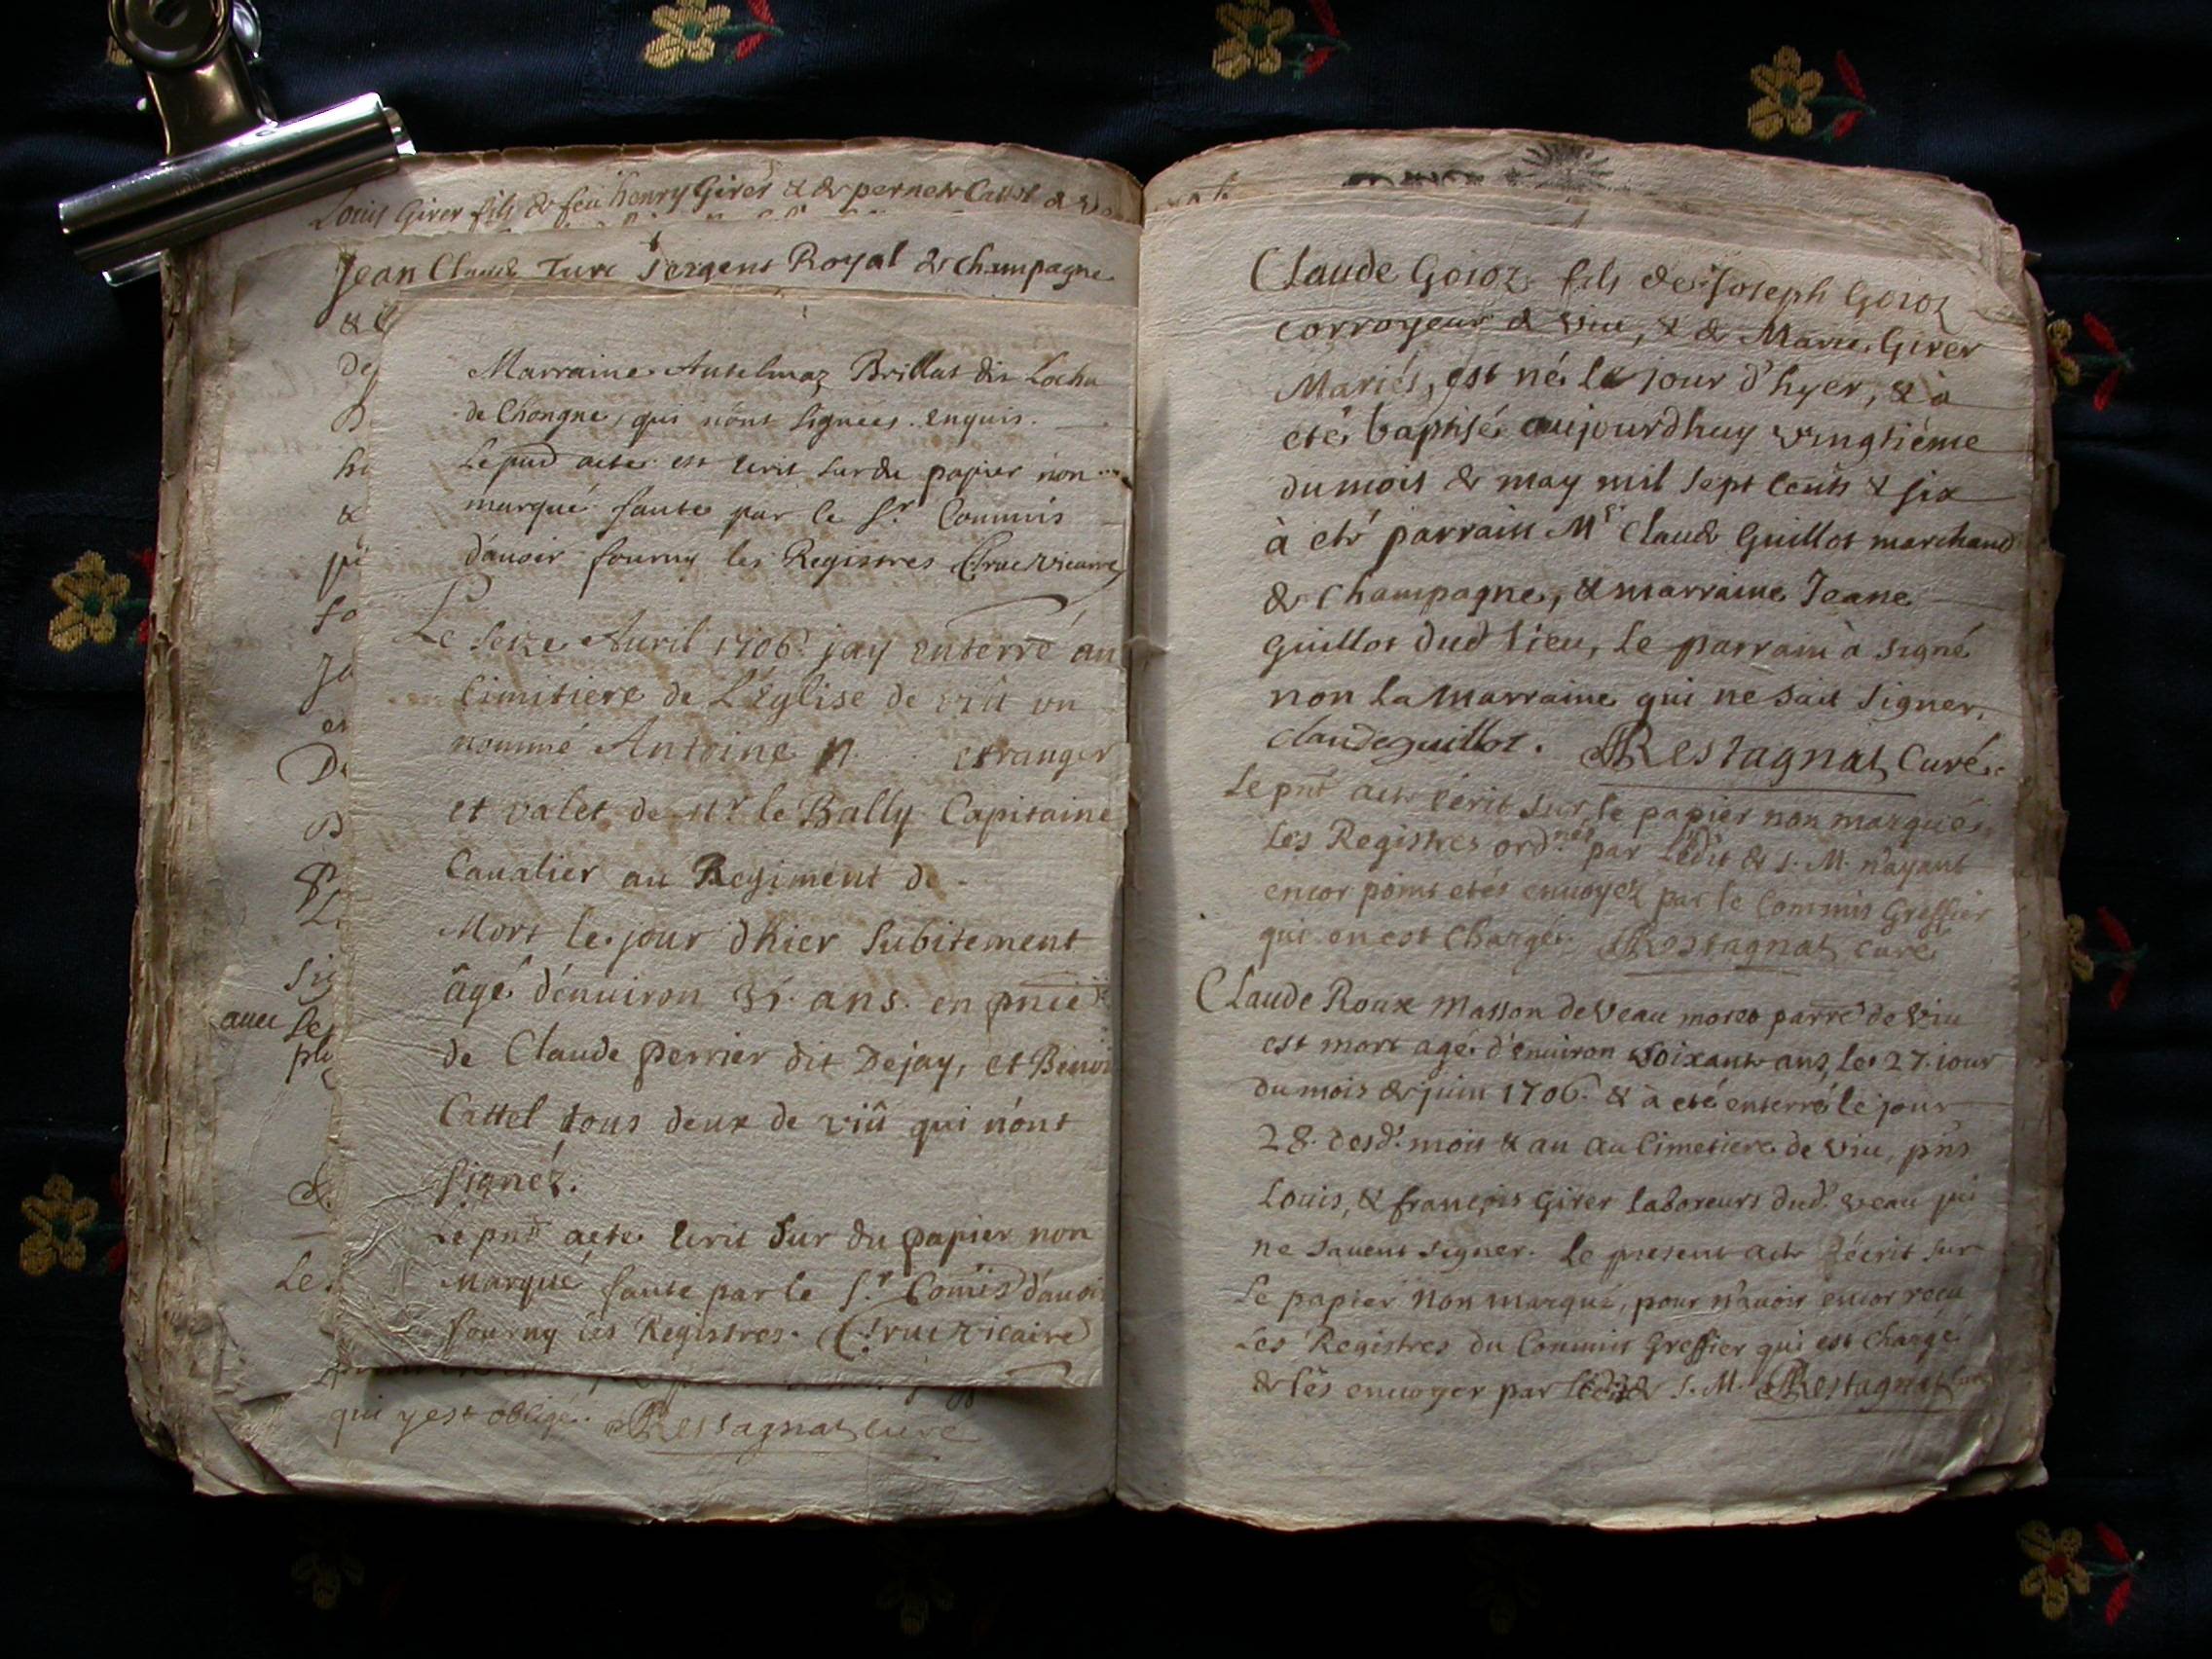 Louis Girer fils de feu henry Girer & de pernete Cattel de
Jean Claude Turc Sergent Royal de champagne
&
de
hi
&
fo
Ja
Marraine Antelmaz Brillat dit Lochu
de Chongne, qui n'ont signées enquis.
Le pnt acte est ecrit sur du papier non
marqué faute par le Sr. Commis
d'avoir fourny les Registres C. truc vicaire
Le Seize Avril 1706. j'ay enterré au
Cimitiere de L'église de viû un
nommé Antoine N. estranger
et valet de Mr le Bally Capitaine
Cavalier au Regiment de -
Mort le jour d'hier Subitement
âgé d'environ 35. ans. en pnce
de Claude perrier dit Dejay, et Benoi
Cattel tous deux de viû qui n'ont
signéz.
Le pnt acte Ecrit Sur du papier non
Marqué faute par le Sr. Comis d'avoi
fourny les Registres. C. truc vicaire
sig
avec les
pl
&
Le
qui y est obligé. Restagnat curé
Claude Goioz fils de Joseph Goioz
corroyeur de viu, & de Marie Girer
Mariés, est né le jour d'hyer, & à
eté baptisé aujourdhuy vingtiéme
du mois de may mil sept cents & six
à eté parrain Mr Claude Guillot marchand
de Champagne, & marraine Jeane
Guillot dud lieu, le parrain à signé
non la marraine qui ne sait signer,
claude guillot. Restagnat Curé.
Le pnt acte écrit sur le papier non marqué,
les Registres ord.nés par L'édit de S. M. n'ayant
encor point etés envoyez par le Commis Greffier
qui en est Chargé. Restagnat curé
Claude Roux Masson de Veau moreo parre de Viu
est mort agé d'environ Soixante ans, le 27. iour
du mois de juin 1706. & à eté enterré le jour
28. desd. mois & an au Cimetiere de Viu, pns
Louis, & françois Girer laboreurs dud. veau qui
ne savent signer. Le present acte écrit sur
le papier non marqué, pour n'avoir encor reçu
Les Registres du Commis Greffier qui est chargé
de les envoyer par L'édit de S. M. Restagnat